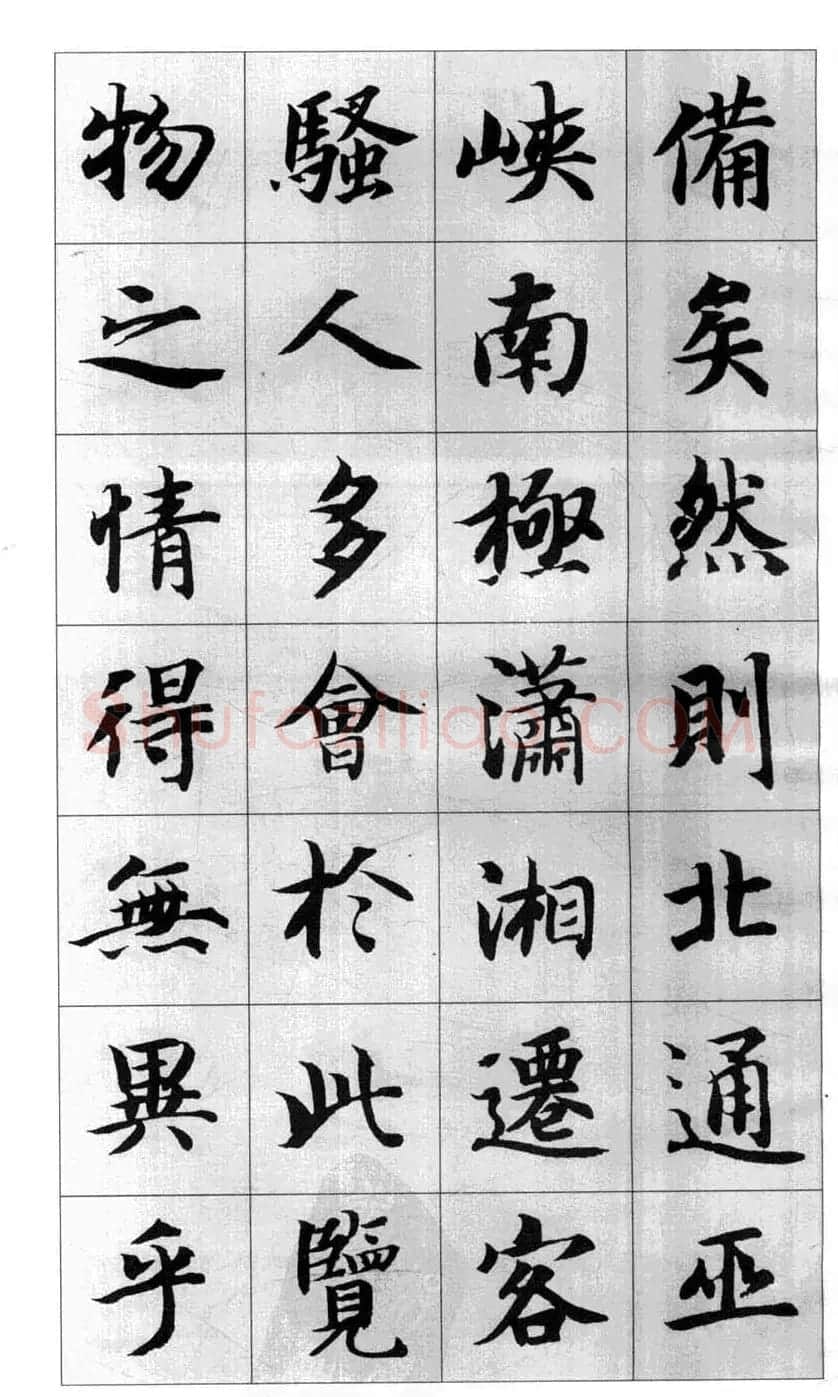 備矣然則北通巫
峽南極瀟湘遷客
騷人多會於此覽
物之情得無異乎
Shufaziliao.COM